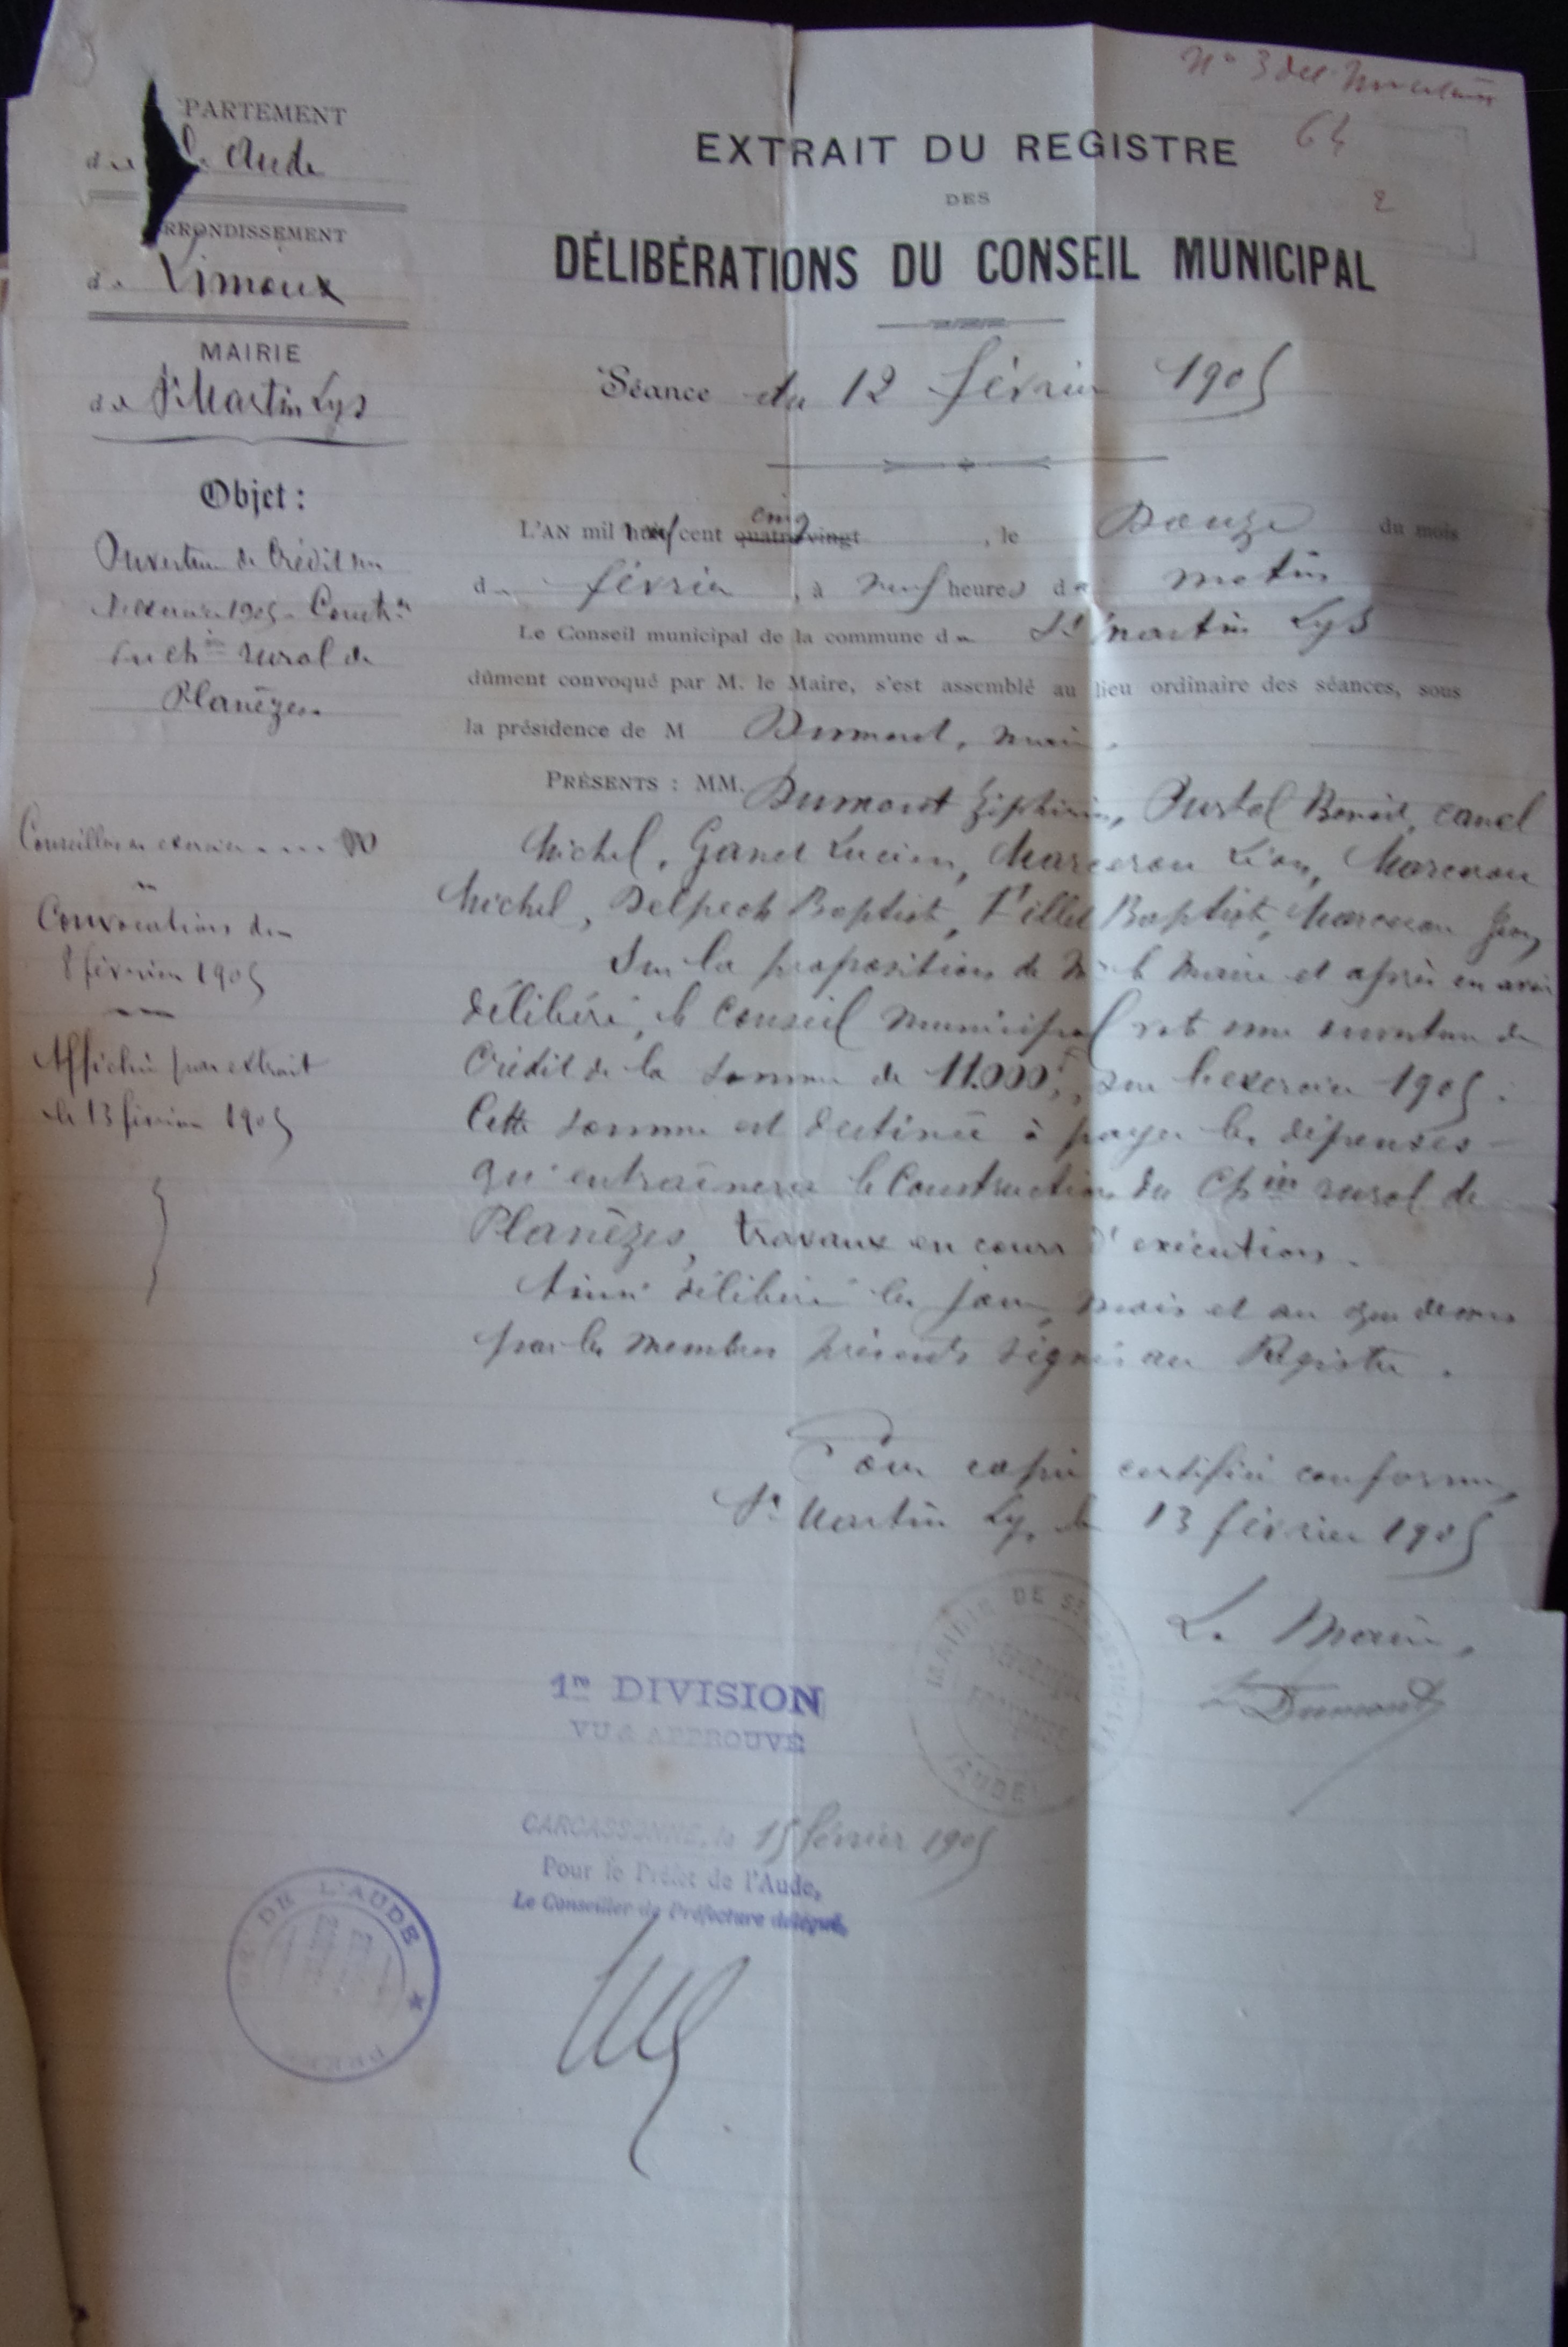 PARTEMENT
de l'Aude
RRONDISSEMENT
de Limoux
MAIRIE
de St Martin Lys
Objet :
Ouverture de Crédit sur
l'exercice 1905 - Constr.on
du ch.in rural de
Planèzes.
Conseillers en exercice . . . . 10
Convocations du
8 février 1905
Affiché par extrait
le 13 février 1905
N° 3 de l'Inventaire
64
2
EXTRAIT DU REGISTRE
DES
DÉLIBÉRATIONS DU CONSEIL MUNICIPAL
Séance du 12 février 1905
L'AN mil neuf cent cinq quatre-vingt , le Douze du mois
de février , à neuf heures du matin
Le Conseil municipal de la commune de St Martin Lys
dûment convoqué par M. le Maire, s'est assemblé au lieu ordinaire des séances, sous
la présidence de M Dumont, maire.
PRÉSENTS : MM. Dumont Zéphirin, Benoit, Canel
Michel, Ganet Lucien, Marceron Léon, Marceron
Michel, Delpech Baptiste, Baptiste, Marceron Jean,
Sur la proposition de Mr le Maire et après en avoir
délibéré, le Conseil Municipal vote une ouverture de
Crédit de la somme de 11.000f, sur l'exercice 1905.
Cette somme est destinée à payer les dépenses
qu'entraînera la Construction du Ch.in rural de
Planèzes, travaux en cours d'exécution.
Ainsi délibéré les jour, mois et an que dessus
par les membres présents signés au Registre.
Pour copie certifiée conforme,
St Martin Lys le 13 février 1905
Le Maire,
Dumont
MAIRIE DE ST MARTIN-LYS
RÉPUBLIQUE
FRANÇAISE
(AUDE)
1re DIVISION
VU & APPROUVÉ
CARCASSONNE, le 15 février 1905
Pour le Préfet de l'Aude,
Le Conseiller de Préfecture délégué,
DE L'AUDE